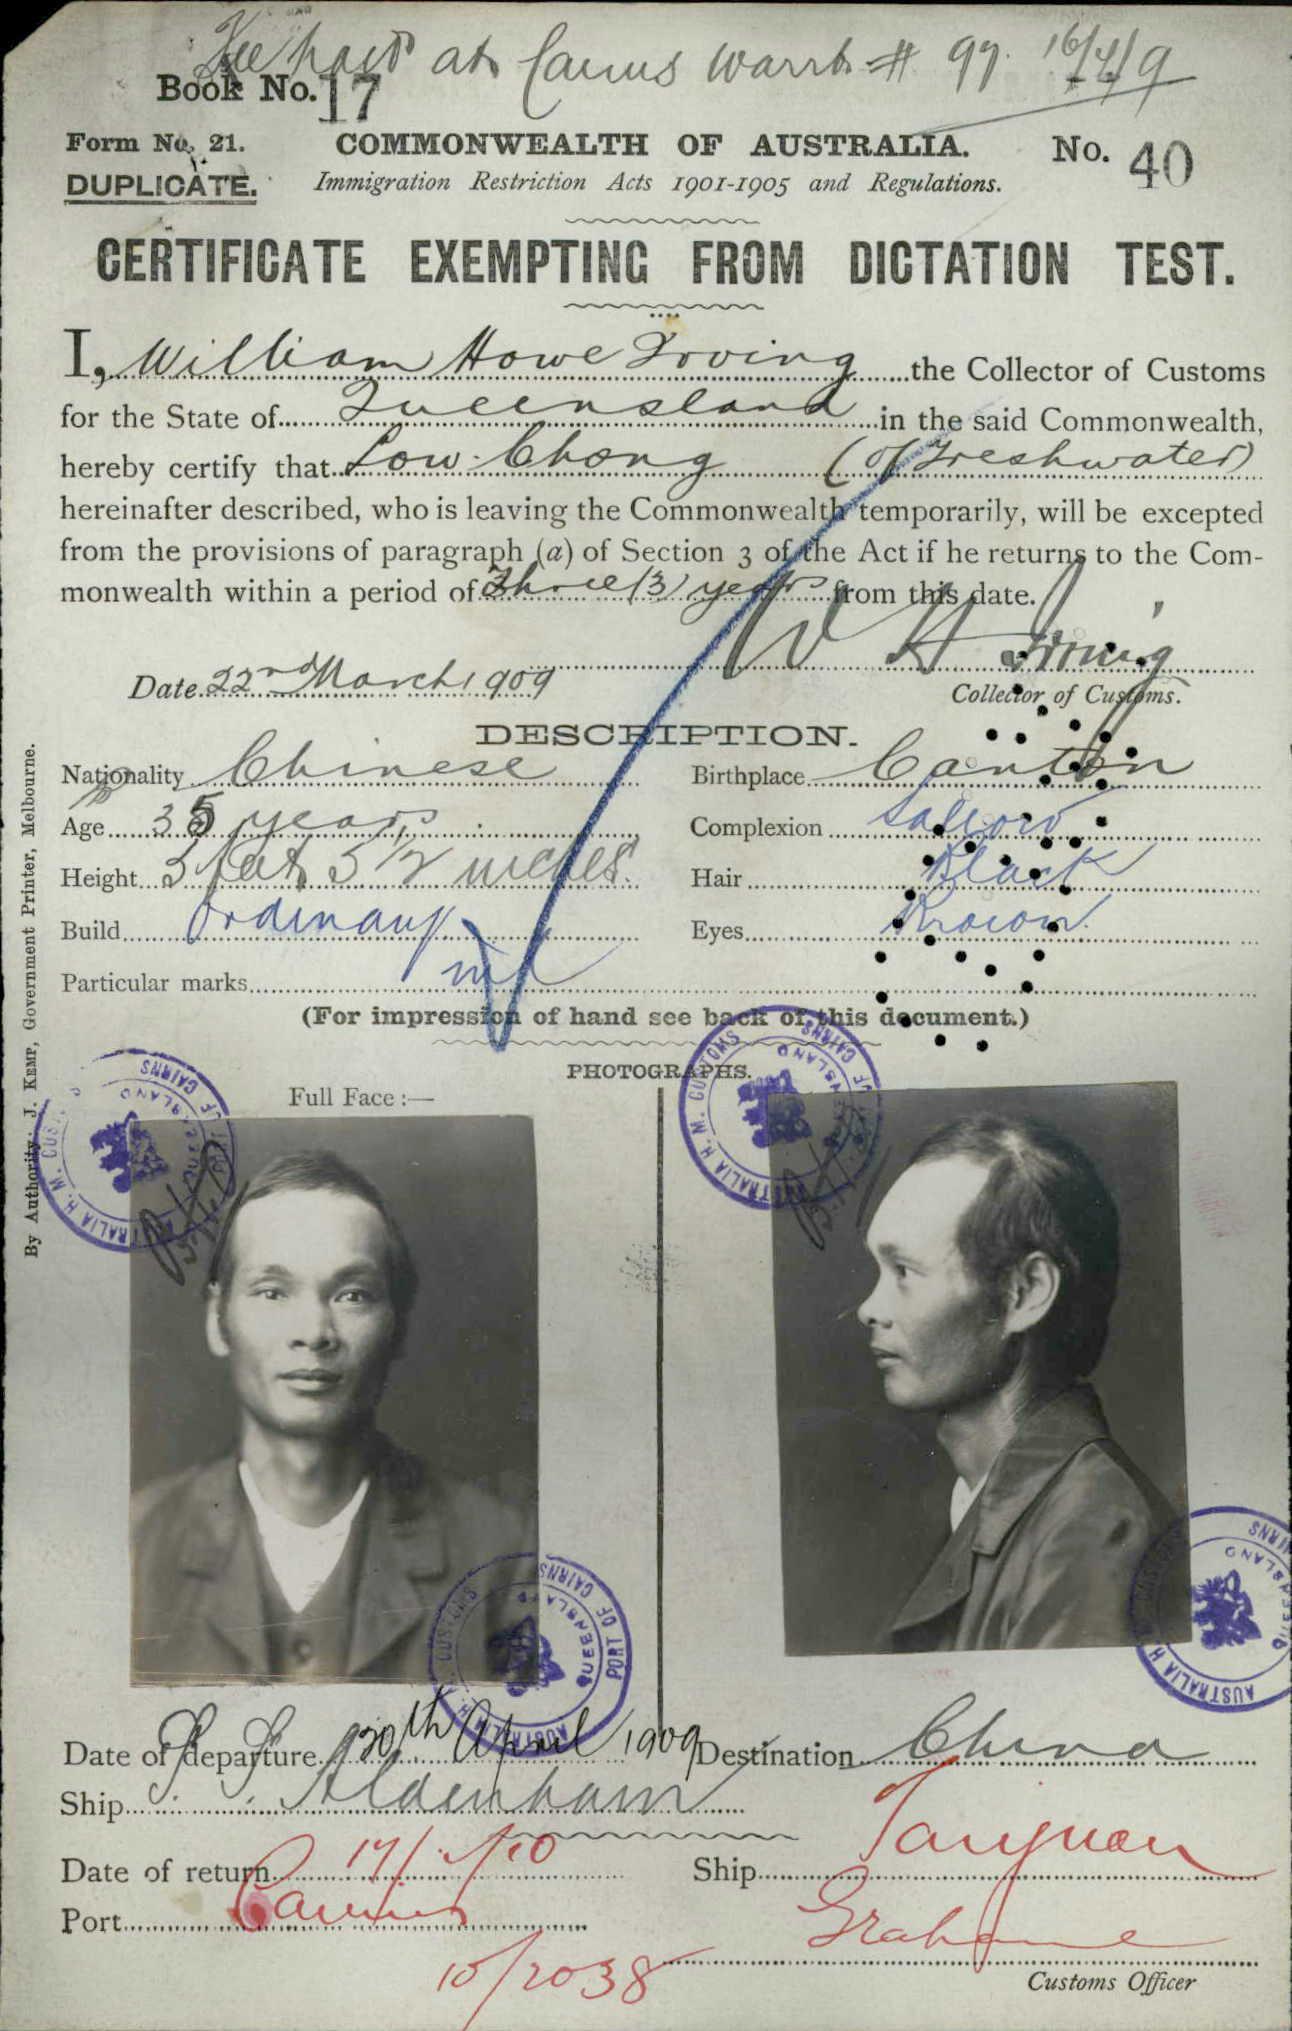 Fee paid at Cairns Warrt. # 97. 16/4/9
Book No. 17
Form No. 21. COMMONWEALTH OF AUSTRALIA. No. 40
DUPLICATE. Immigration Restriction Acts 1901-1905 and Regulations.
CERTIFICATE EXEMPTING FROM DICTATION TEST.
I, William Howe Irving the Collector of Customs
for the State of Queensland in the said Commonwealth,
hereby certify that Low Chong (of Freshwater)
hereinafter described, who is leaving the Commonwealth temporarily, will be excepted
from the provisions of paragraph (a) of Section 3 of the Act if he returns to the Com-
monwealth within a period of Three (3) years from this date.
W H Irving
Date 22nd March 1909 Collector of Customs.
DESCRIPTION.
Nationality Chinese Birthplace Canton
Age 35 years Complexion Sallow
Height 5 feet 5 1/2 inches Hair Black
Build Ordinary Eyes Brown
Particular marks nil
(For impression of hand see back of this document.)
PHOTOGRAPHS.
Full Face :—
AUSTRALIA H. M. CUSTOMS PORT OF CAIRNS QUEENSLAND
AUSTRALIA H. M. CUSTOMS PORT OF CAIRNS QUEENSLAND
AUSTRALIA H. M. CUSTOMS PORT OF CAIRNS QUEENSLAND
AUSTRALIA H. M. CUSTOMS PORT OF CAIRNS QUEENSLAND
Date of departure 20th April 1909 Destination China
Ship S. S. Aldenham
Date of return 17/ /10 Ship Taiyuan
Port Cairns
Grahame
10/2038 Customs Officer
By Authority: J. KEMP, Government Printer, Melbourne.